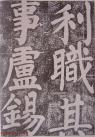 利職其
事盧錫